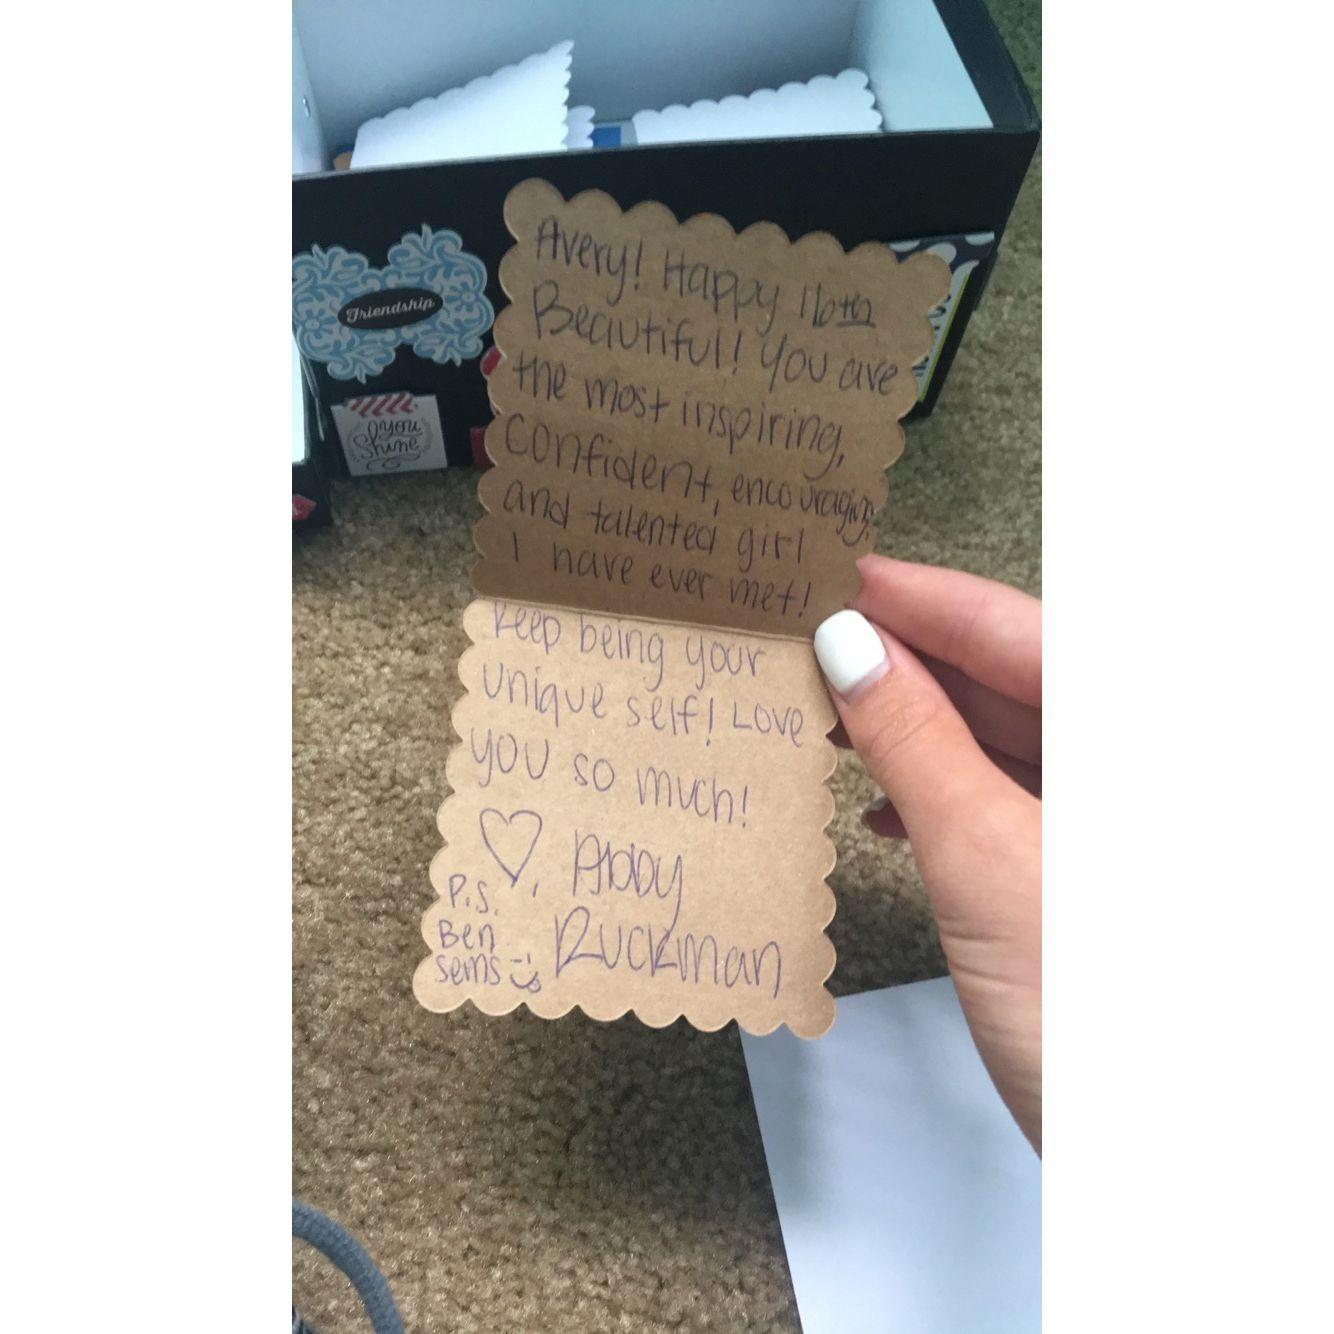 Friendship
you
Shine
Avery! Happy 16th
Beautiful! You are
the most inspiring,
confident, encouraging,
and talented girl
I have ever met!
Keep being your
unique self! Love
you so much!
♡, Abby
Ruckman
P.S.
Ben
sems :)